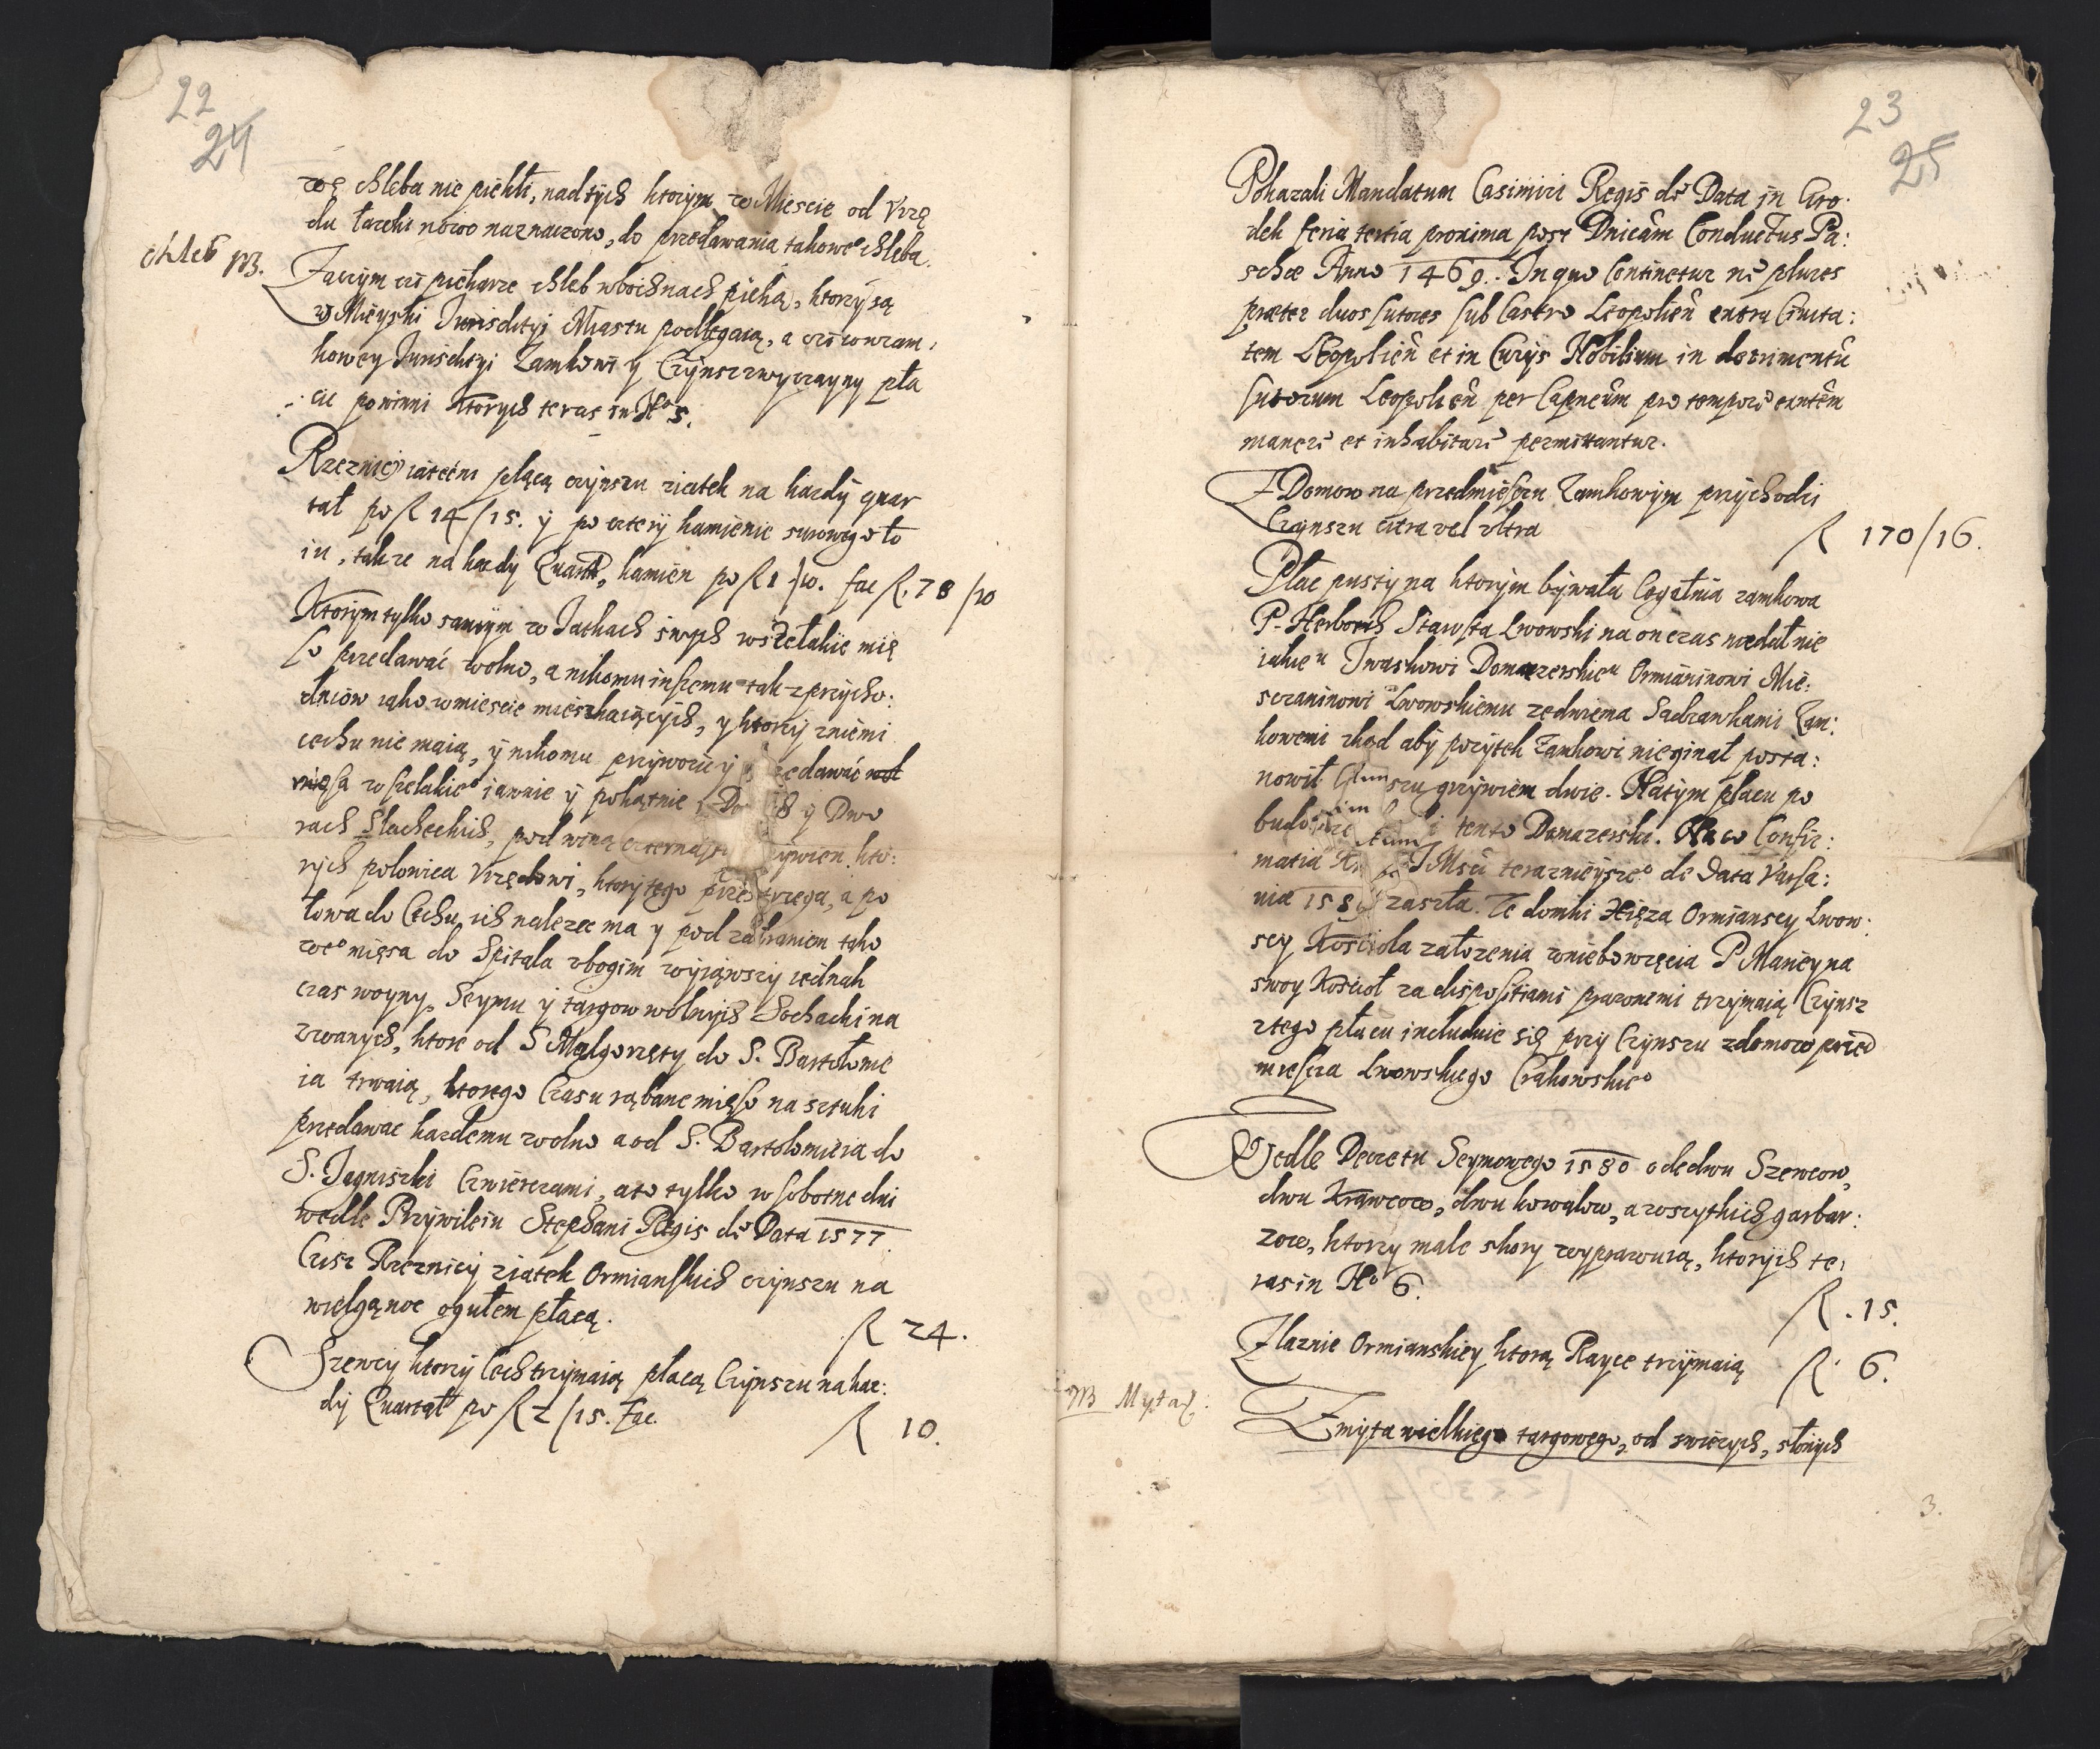 22
24
wę chleba nie piekli, nad tych ktorym w Miescie od Vrzę
du ławki nowo naznaczono, do przedawania takowe° chleba.
chleb NB.
Zaczym ci piekarze chleb w bochnach pieką, ktorzy są
w Mieyski Jurisdityi Miastu podlegaią, a ci co w zam,
kowey Jurisdityi Zamkowi y Czynsz zwyczayny pła
cic powinni ktorych teras in N° 5.
Rzeznicy iateczni płącą czynszu z iatek na kazdy quar
tał po R 14/15. y po cztery kamienie surowego ło
iu, takze na kazdy Quartał, kamien po R 1/10. fac R. 78/20
Ktorym tylko samym w Jatkach swych wszelakie mię
so przedawać wolno, a nikomu inszemu tak z przycho:
dniow iako w miescie mieszkaiących, y ktorzy z niemi
cechu nie maią, y nikomu przywozic y przedawać
mięsa wszelakie° iawnie y pokątnie y Dwo
rach Slacheckich, pod winą czternascie grzywien kto:
rych polowica Vrzędowi, ktory tego przestrzega, a po
łowa do Cechu ich nalezec ma y pod zabraniem tako
we° mięsa do Spitala vbogim wyiąwszy iednak
czas woyny, Seymu y targow wolnych Sochaczki na
zwanych, ktore od S Malgorzęty do S. Bartołome
ia trwaią, ktorego Czasu rąbane mięso na sztuki
przedawac kazdemu wolno a od S. Bartolomieia do
S. Jagniszki Czwierczami, a to tylko w sobotne dni
wedle Przywileiu Stephani Regis de Data 1577
Cisz Rzeznicy z iatek Ormianskich czynszu na
wielgąnoc ogułem płacą.
R 24.
Szewcy ktorzy Cech trzymaią płacą Czynszu na kaz:
dy Quartał po R 2/15. fac.
R 10.
23
25
Pokazali Mandatum Casimiri Regis de Data in Gro:
dek feria tertia proxima post Dnicam Conductus Pa:
schæ Anno 1469. In quo Continetur ne plures
præter duos sutores sub Castro Leopolien extra Ciuita:
tem Leopolien et in Curys Nobilium in detrimentu
sutorum Leopolien per Capneum pro tempore exntem
manere et inhabitare permittantur.
Z Domow na przedmiesciu Zamkowym przychodzi
Czynszu citra vel vltra
R 170/16.
Płac pusty na ktorym bywała Cegalnia zamkowa
P. Herborth Starosta Lwowski na on czas nadał nie
iakie° Iwaskowi Domazerskie° Ormianinowi Mie:
szczaninowi Lwowskiemu ze dwiema Sadzawkami Zam:
kowemi zkąd aby pozytek Zamkowi nieginął posta:
nowił Czynszu grzywiem dwie. Na tym placu po
tento Domazerski. Na co Confir:
matia JMsci terazniejsze° de Data Varsa:
zaszła. Te domki Xięza Ormianscy Lwow:
scy Kosciola załozenia wniebowzięcia P Mariey na
swoy Kosciol za dispositiami prawnemi trzymaią Czynsz
z tego placu includuie się przy Czynszu z domow przed
miescza Lwowskiego Crakowskie°
Wedle Decretu Seymowego 1580 ode dwu Szewcow,
dwu Krawcow, dwu kowalow, a wszytkich garbar:
zow, ktorzy male skory wyprawuią, ktorych te:
ras in N° 6.
R. 15.
Z łaznie Ormianskiey ktorą Rayce trzymaią
R. 6.
NB Myta
Z myta wielkiego targowego, od swiezych, słonych
3.